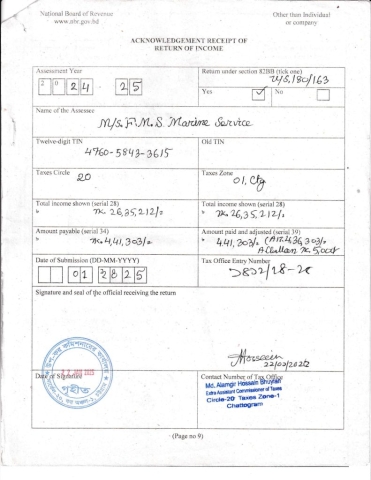 National Board of Revenue
www.nbr.gov.bd
Other then Individual
or company
ACKNOWLEDGEMENT RECEIPT OF
RETURN OF INCOME
Assessment Year
2 0 2 4 2 5
Return under section 82BB (tick one)
U/S, 180/163
Yes ✓ No
Name of the Assessee
M/S. F.M.S Marine Service
Twelve-digit TIN
4760-5843-3615
Old TIN
Taxes Circle
20
Taxes Zone
01, Ctg
Total income shown (serial 28)
৳ TK. 26,35,212/=
Total income shown (serial 28)
৳ TK 26,35,212/=
Amount payable (serial 34)
৳ TK. 4,41,303/=
Amount paid and adjusted (serial 39)
৳ 441,303/=
A Challan TK 5,000/
Date of Submission (DD-MM-YYYY)
Tax Office Entry Number
Signature and seal of the official receiving the return
গৃহীত
Date of Signature
Contact Number of Tax Office
Md. Alamgir Hossain Bhuyian
Extra Assistant Commissioner of Taxes
Circle-20 Taxes Zone-1
Chattogram
(Page no 9)